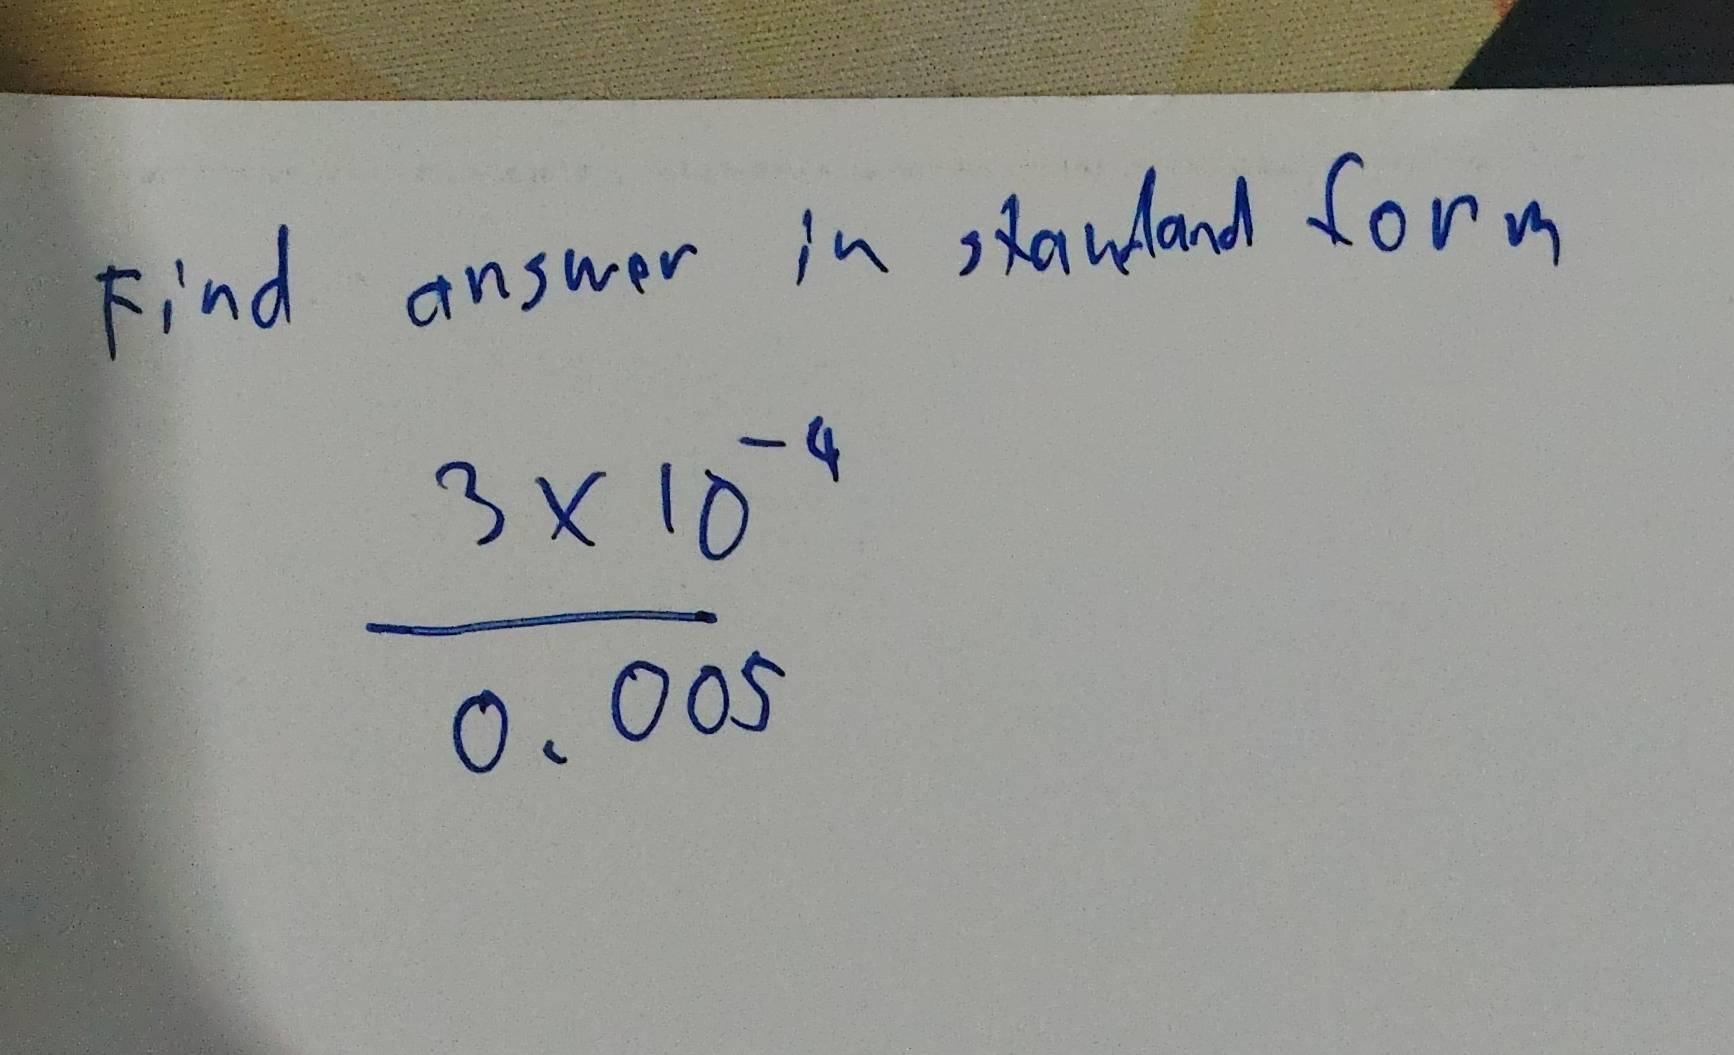 Find answer in standand form
3 x 10^-4
0.005